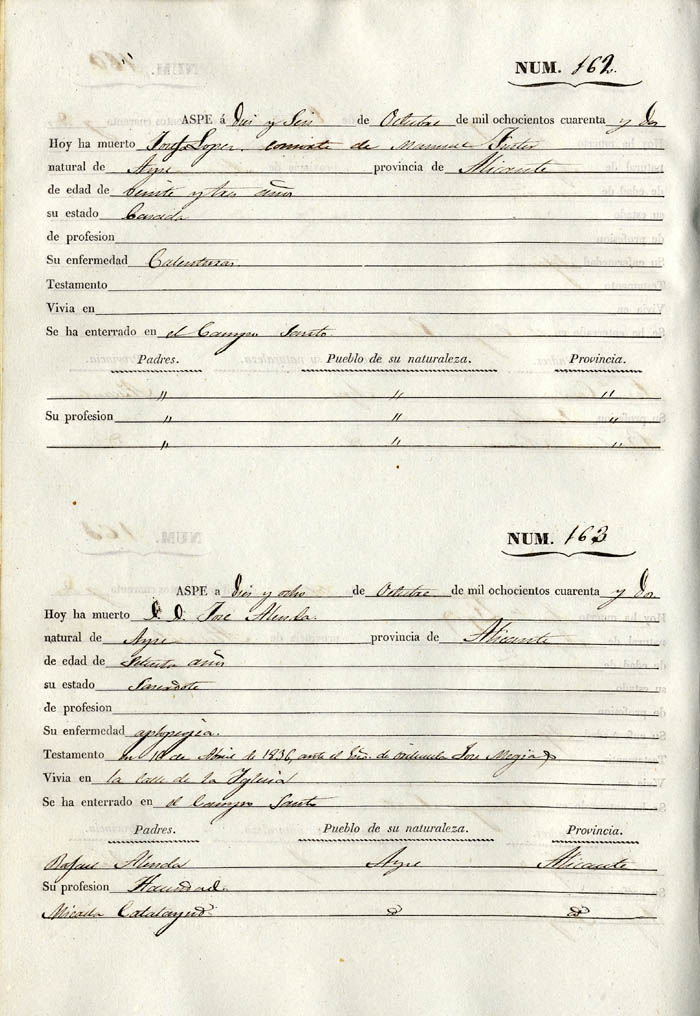 NUM. 162.
ASPE á Diez y Seis de Octubre de mil ochocientos cuarenta y Dos
Hoy ha muerto Josefa Lopez consorte de Manuel
natural de Aspe provincia de Alicante
de edad de veinte y tres años
su estado Casada
de profesion
Su enfermedad Calenturas
Testamento
Vivia en
Se ha enterrado en el Campo Santo
Padres. Pueblo de su naturaleza. Provincia.
" " "
Su profesion " " "
" " "
NUM. 163
ASPE a Diez y ocho de Octubre de mil ochocientos cuarenta y Dos
Hoy ha muerto D. Jose Alenda
natural de Aspe provincia de Alicante
de edad de setenta años
su estado Sacerdote
de profesion
Su enfermedad aplopegia.
Testamento en de Abril de 1836, ante el Jose
Vivia en la calle de la Iglesia
Se ha enterrado en el Campo Santo
Padres. Pueblo de su naturaleza. Provincia.
Rafael Alenda Aspe Alicante
Su profesion Hacendad.
Micaela Calatayud